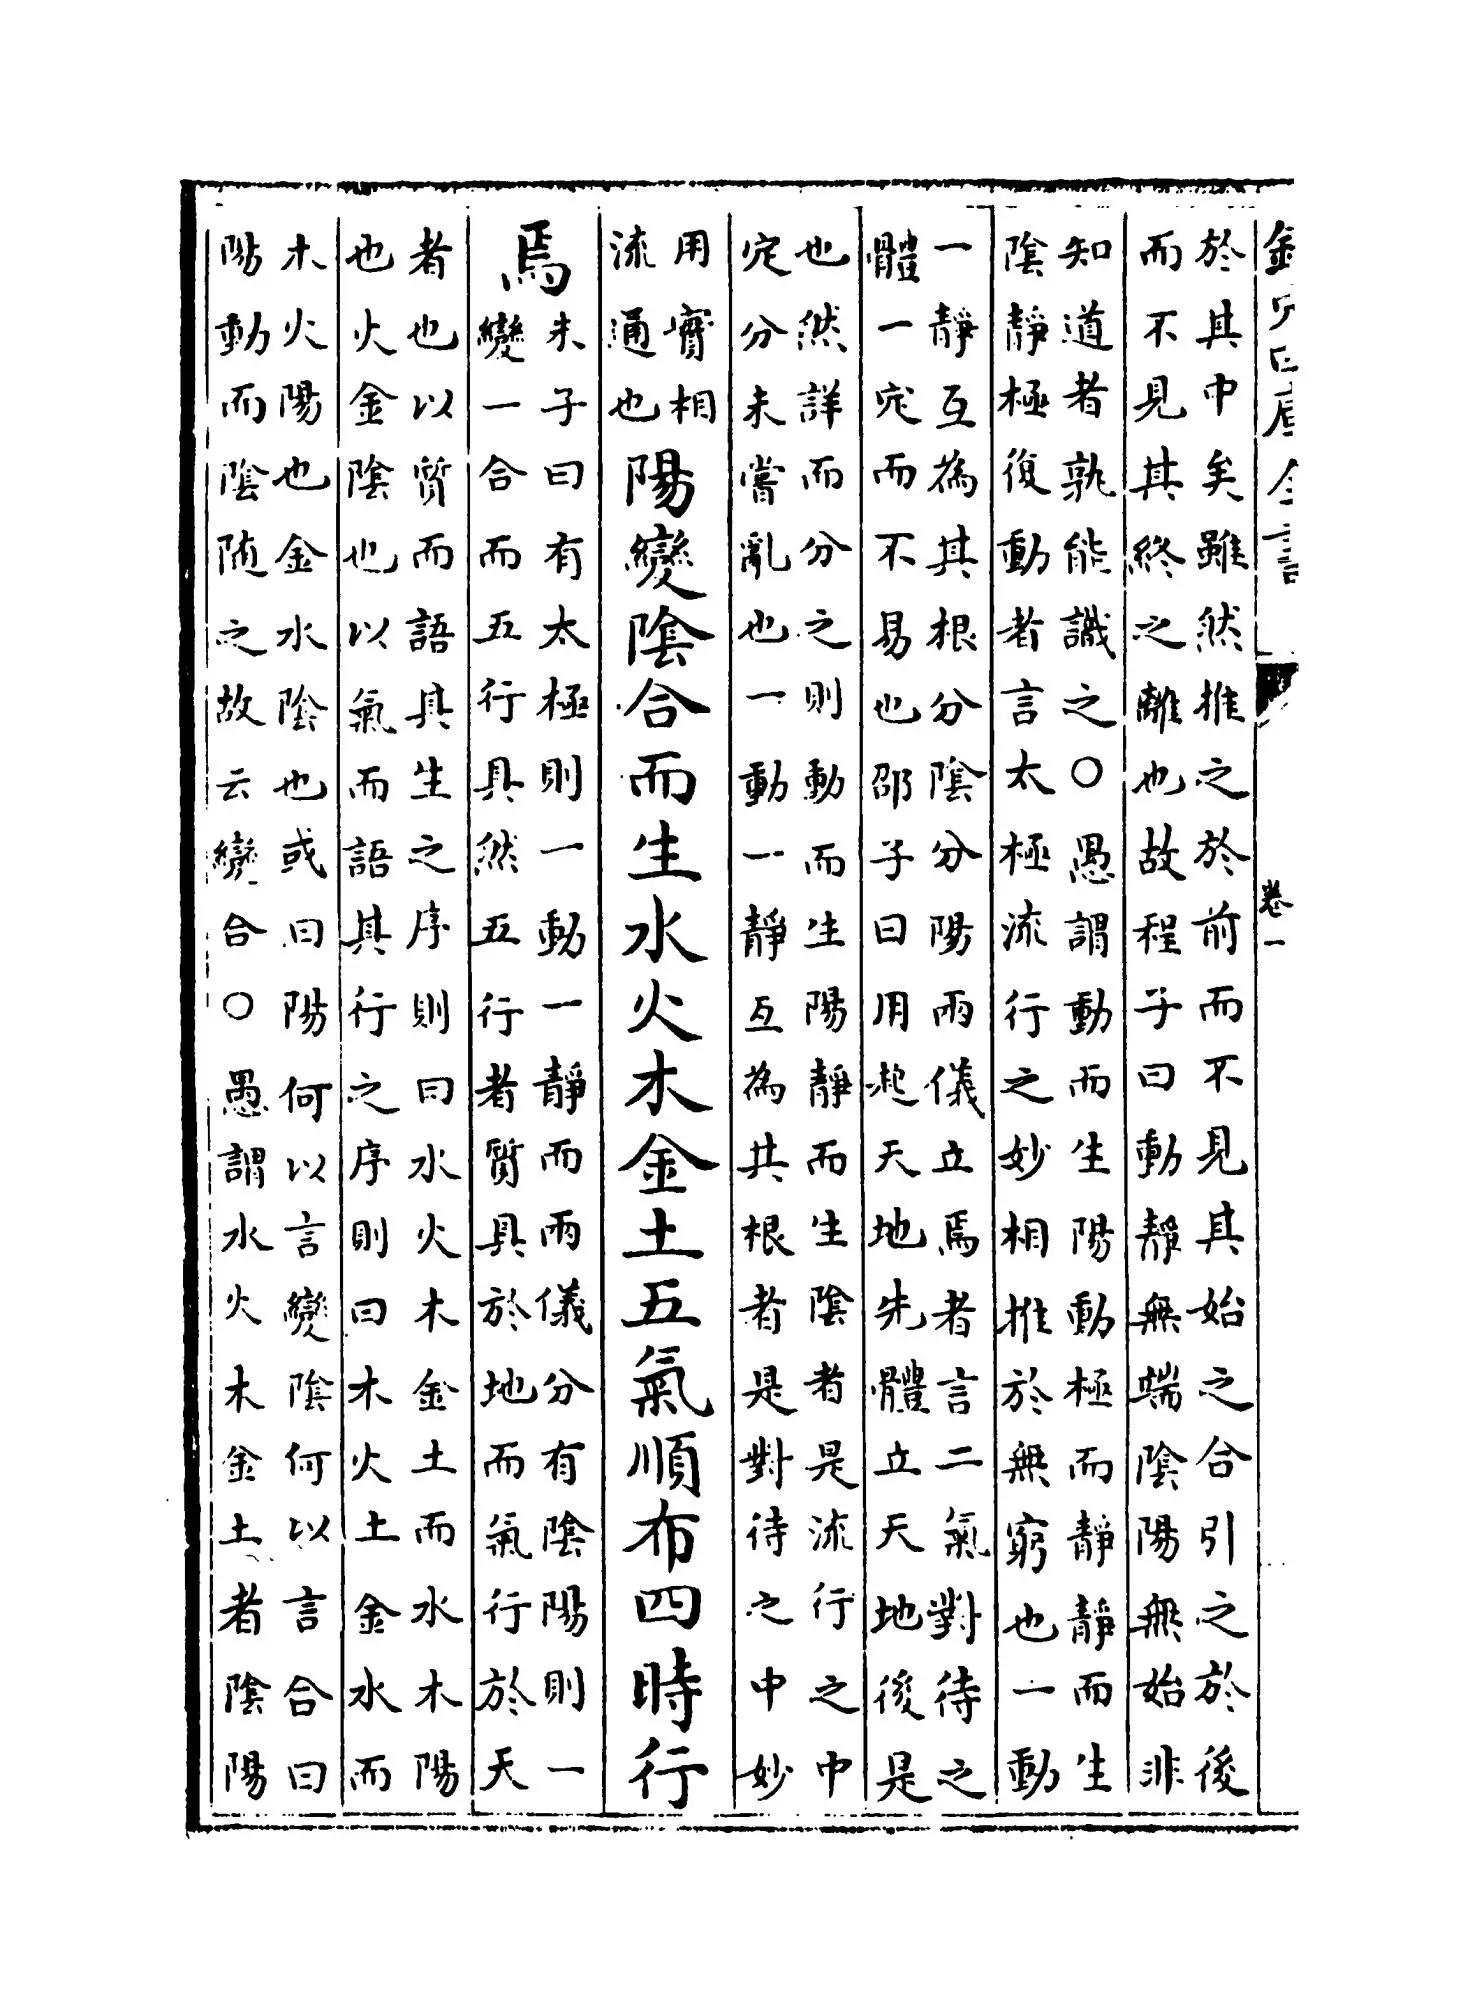 欽定四庫全書
卷一
於其中矣雖然推之於前而不見其始之合引之於後
而不見其終之離也故程子曰動靜無端陰陽無始非
知道者孰能識之○愚謂動而生陽動極而靜靜而生
陰靜極復動者言太極流行之妙相推於無窮也一動
一靜互為其根分陰分陽兩儀立焉者言二氣對待之
體一定而不易也邵子曰用起天地先體立天地後是
也然詳而分之則動而生陽靜而生陰者是流行之中
定分未嘗亂也一動一靜互為其根者是對待之中妙
用實相
流通也
陽變陰合而生水火木金土五氣順布四時行
焉
朱子曰有太極則一動一靜而兩儀分有陰陽則一
變一合而五行具然五行者質具於地而氣行於天
者也以質而語具生之序則曰水火木金土而水木陽
也火金陰也以氣而語其行之序則曰木火土金水而
木火陽也金水陰也或曰陽何以言變陰何以言合曰
陽動而陰隨之故云變合○愚謂水火木金土者陰陽